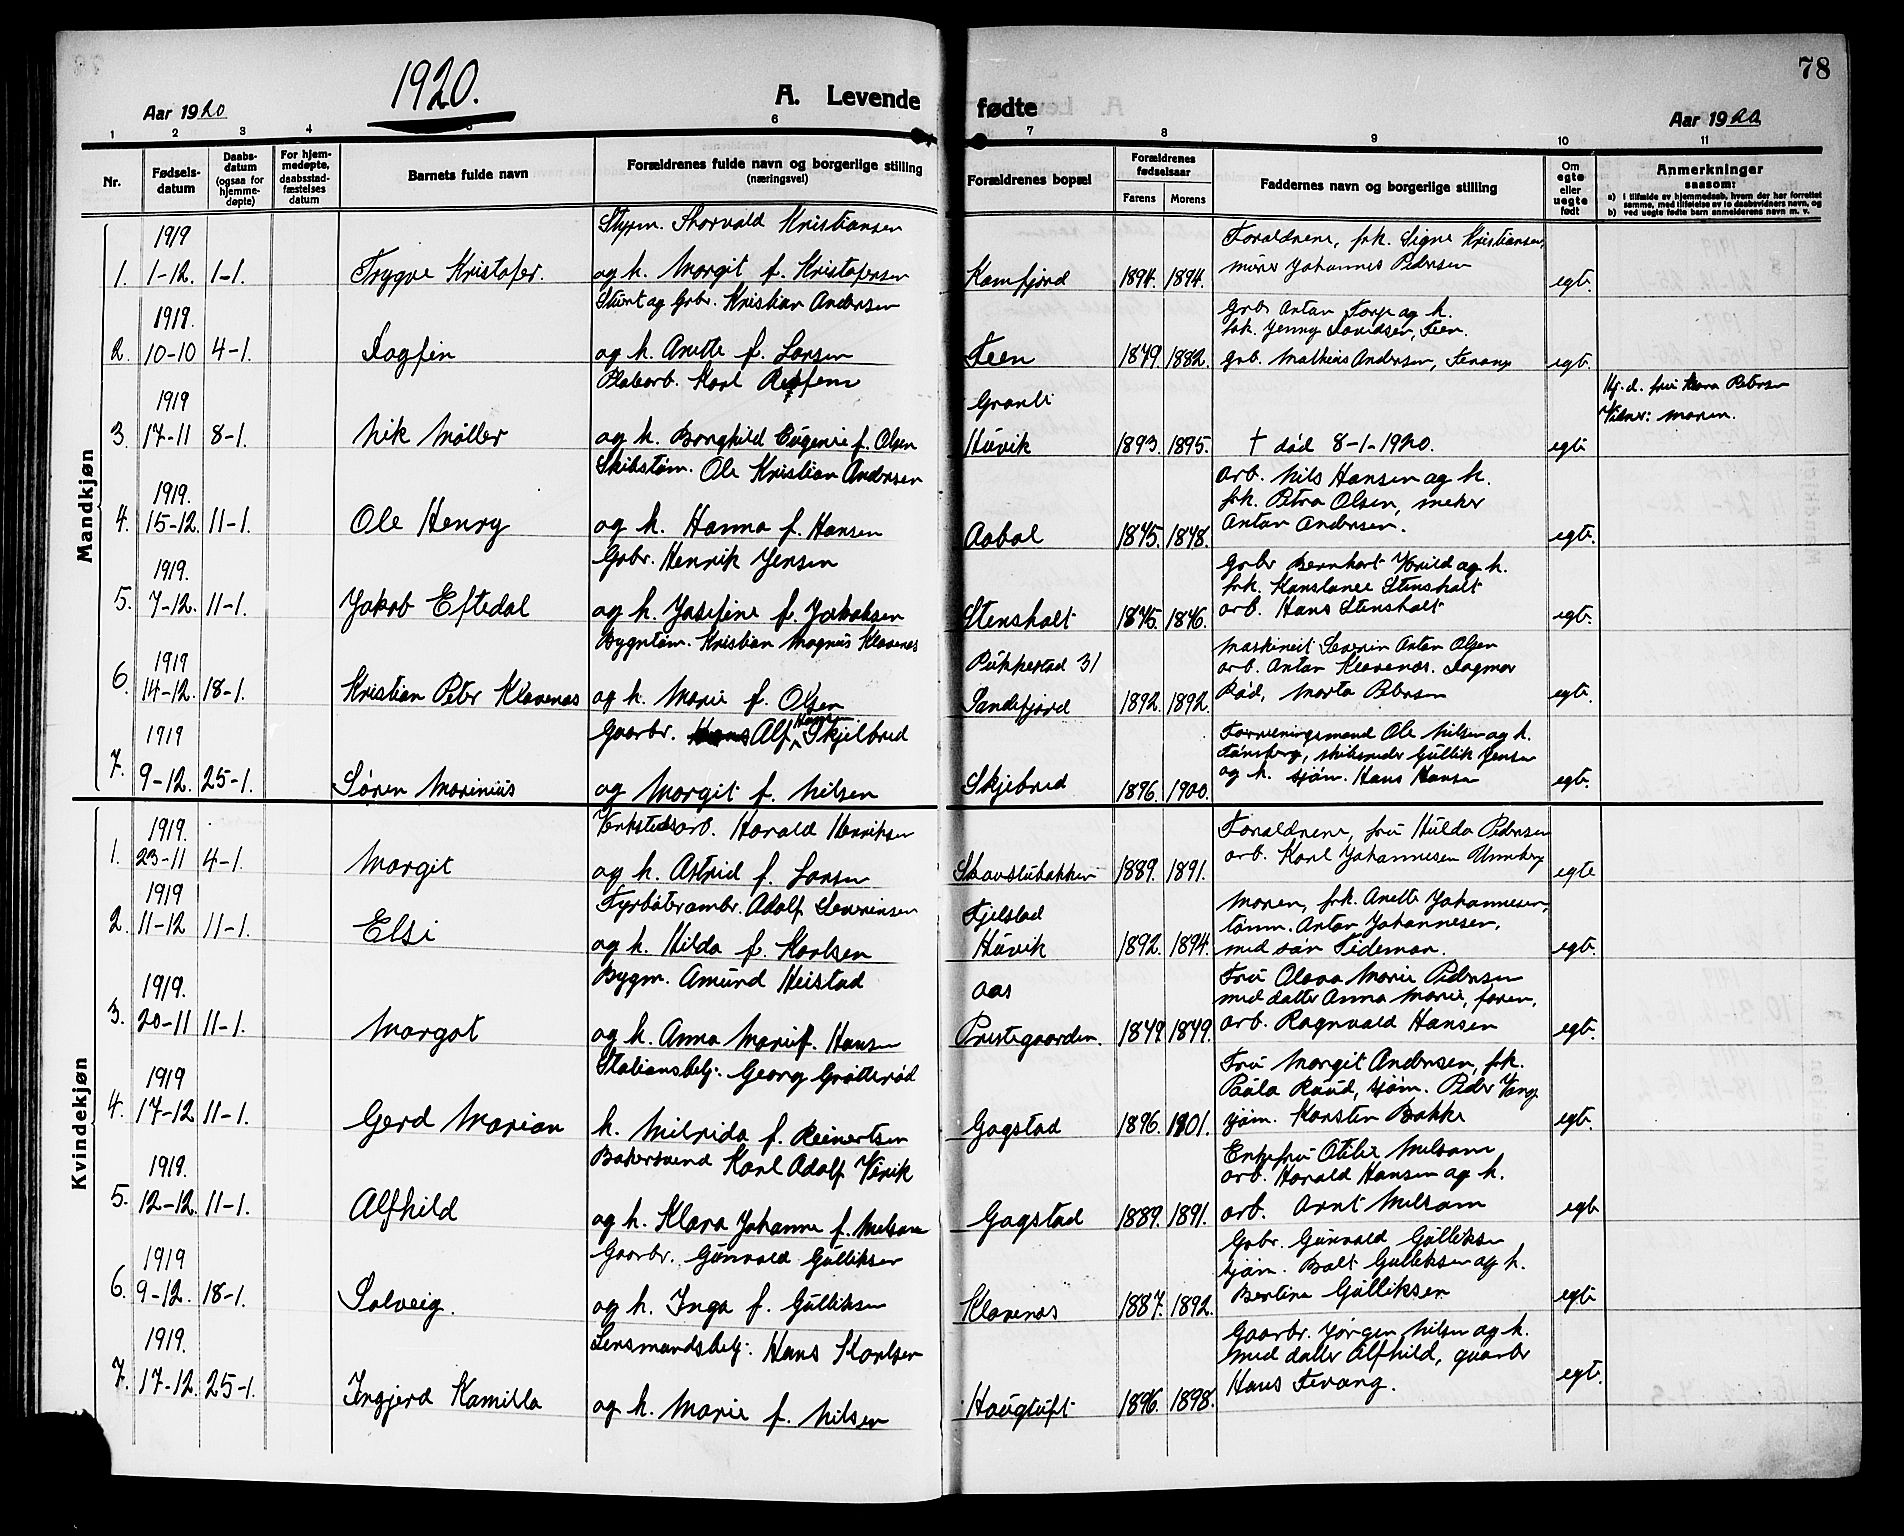 78
1920.
Aar 1920
A. Levende fødte
Aar 1920
1 2 3 4 5 6 7 8 9 10 11
Nr.
Fødsels-
datum
Daabs-
datum
(ogsaa for
hjemme-
døpte)
For hjem-
medøpte,
daabsstad-
fæstelses
datum
Barnets fulde navn
Forældrenes fulde navn og borgerlige stilling
(næringsvei)
Forældrenes bopæl
Forældrenes
fødselsaar
Farens Morens
Faddernes navn og borgerlige stilling
Om
egte
eller
uegte
født
Anmerkninger
saasom:
a) i tilfælde av hjemmedaab, hvem der har forrettet
samme, med tilføielse av to daabsvidners navn, og
b) ved uegte fødte barn anmelderens navn m. v.
Mandkjøn
1919 Styrm. Thorvald Kristiansen Forældrene, frk. Signe Kristiansen,
1. 1-12. 1-1. Trygve Kristofer. og h. Margit f. Kristofersen Kamfjord 1894. 1894. murer Johannes Pedersen egt.
1919. og Gbr. Kristian Andersen Gbr. Anton Torp og h.
frk. Jenny Davidsen, Feen.
2. 10-10 4-1. Dagfin og h. Anette f. Larsen Feen 1879. 1882. Gbr. Mathias Andersen, Fevang egt.
1919 Platearb. Karl Granli Hj. d. fru Petersen
Vidner: moren.
3. 17-11 8-1. Nik Møller og h. Borghild Eugenie f. Olsen Huvik 1893. 1895. † død 8-1-1920. egt.
1919. Skibstøm. Ole Kristian Andersen arb. Nils Hansen og h.
frk. Petra Olsen, meker
4. 15-12. 11-1. Ole Henry og h. Hanna f. Hansen Aabol 1875. 1878. Anton Andersen. egt.
1919. Gbr. Henrik Jensen Gbr Bernhart Virild og h.
frk. Konstance Stensholt
5. 7-12. 11-1. Jakob Eftedal og h. Josefine f. Jakobsen Stensholt 1875. 1876. arb. Hans Stensholt egt.
1919 Bygntøm. Kristian Magnus Klavenes Pukkestad 31 Maskineit Severin Anton Olsen
arb. Anton Klavenæs. Dagmar
6. 14-12. 18-1. Kristian Peter Klavenæs og h. Marie f. Olsen Sandefjord 1892. 1892. Rød, Marta Petersen egt.
1919 Gaarbr. Alf Hans Skjelbred Forretningsmand Ole Nilsen og h.
Tønsberg, skibsreder Gullik Jensen
7. 9-12. 25-1. Søren Marinius og Margit f. Nilsen Skjebred 1896. 1900. og h. sjøm. Hans Hansen egt.
Kvindekjøn
1919. Verkstedsarb. Harald Henriksen Forældrene, fru Hulda Pedersen
1. 23-11 4-1. Margit og h. Astrid f. Larsen Skavslubakken 1889. 1891. arb. Karl Johannesen Unneberg egte
1919 Fyrbøterambr. Adolf Severinsen Fjelstad Moren, frk. Anette Johannesen,
tømm. Anton Johannesen,
2. 11-12 11-1. Elsi og h. Hilda f. Karlsen Huvik 1892. 1894. med søn Tideman. egt.
1919. Bygm. Amund Heistad Aas Fru Olava Marie Pedersen
med datter Anna Marie, faren,
3. 20-11 11-1. Margot og h. Anna Marie f. Hansen Prestegaarden. 1879 1879. arb. Ragnvald Hansen egt.
1919 Stationsbetj. Georg Grøtterød Fru Margit Andersen, frk.
Paula Ruud, sjøm. Peder Vang
4. 17-12 11-1. Gerd Marian h. Milrida f. Reinertsen Gogstad 1896. 1901. sjøm. Karsten Bakke egt.
1919. Bakersvend Karl Adolf Virik Enkefru Otilie Melsom
arb. Harald Hansen og h.
5. 12-12. 11-1. Alfhild og h. Klara Johanne f. Melsom Gogstad 1889. 1891. arb. Arnt Melsom egt
1919 Gaarbr. Gunvald Gulliksen Gbr. Gunvald Gulliksen
sjøm. Bolt Gulliksen og h.
6. 9-12. 18-1. Solveig. og h. Inga f. Gulliksen Klavenæs 1887. 1892. Bertine Gulliksen egt
1919. Lensmandsbetj. Hans Karlsen Gaarbr. Jørgen Nilsen og h.
med datter Alfhild, gaarbr
7. 17-12. 25-1. Ingjerd Kamilla og h. Marie f. Nilsen Haugtuft 1896. 1898. Hans Fevang. egt.